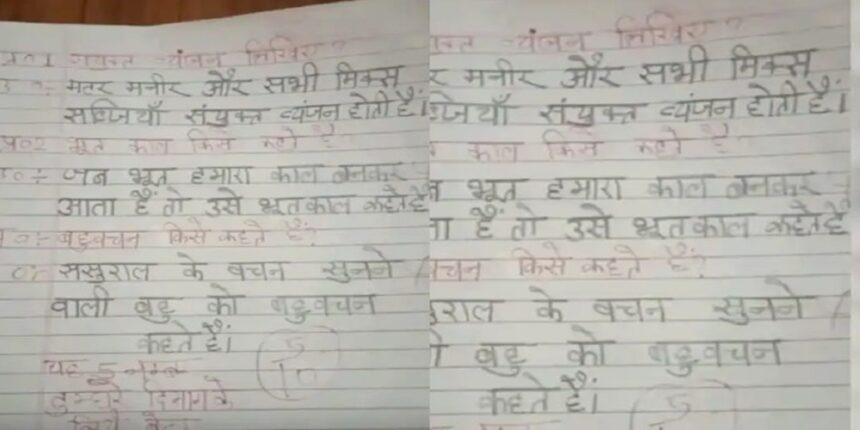 प्र०1 संयुक्त व्यंजन लिखिए?
उ०:- मतर मनीर और सभी मिक्स
सब्जियाँ संयुक्त व्यंजन होती हैं।
प्र०2 भूत काल किसे कहते है?
उ०:- जब भूत हमारा काल बनकर
आता हैं तो उसे भूतकाल कहतेहै
प्र०:- बहुवचन किसे कहते हैं?
उ०:- ससुराल के वचन सुनने
वाली बहु को बहुवचन
कहते हैं।
5/10
यह 5 नम्बर
तुम्हारे दिमाग के
लिये बेटा
व्यंजन लिखिए?
मनीर और सभी मिक्स
संयुक्त व्यंजन होती हैं।
काल किसे कहते है?
भूत हमारा काल बनकर
हैं तो उसे भूतकाल कहतेहै
वचन किसे कहते हैं?
के वचन सुनने
बहु को बहुवचन
कहते हैं।
5